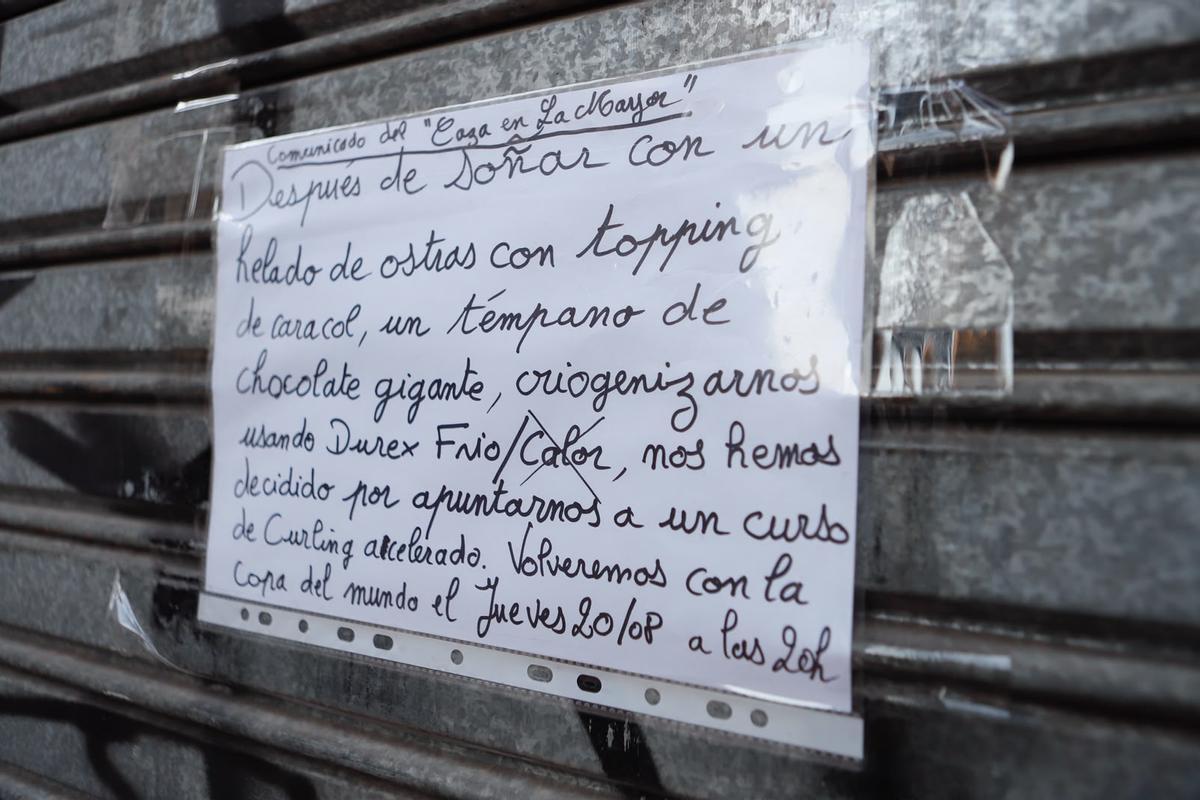 Comunicado del "Caza en La Mayor"
Después de soñar con un
helado de ostras con topping
de caracol, un témpano de
chocolate gigante, criogenizarnos
usando Durex Frio/Calor, nos hemos
decidido por apuntarnos a un curso
de Curling acelerado. Volveremos con la
copa del mundo el Jueves 20/08 a las 20h